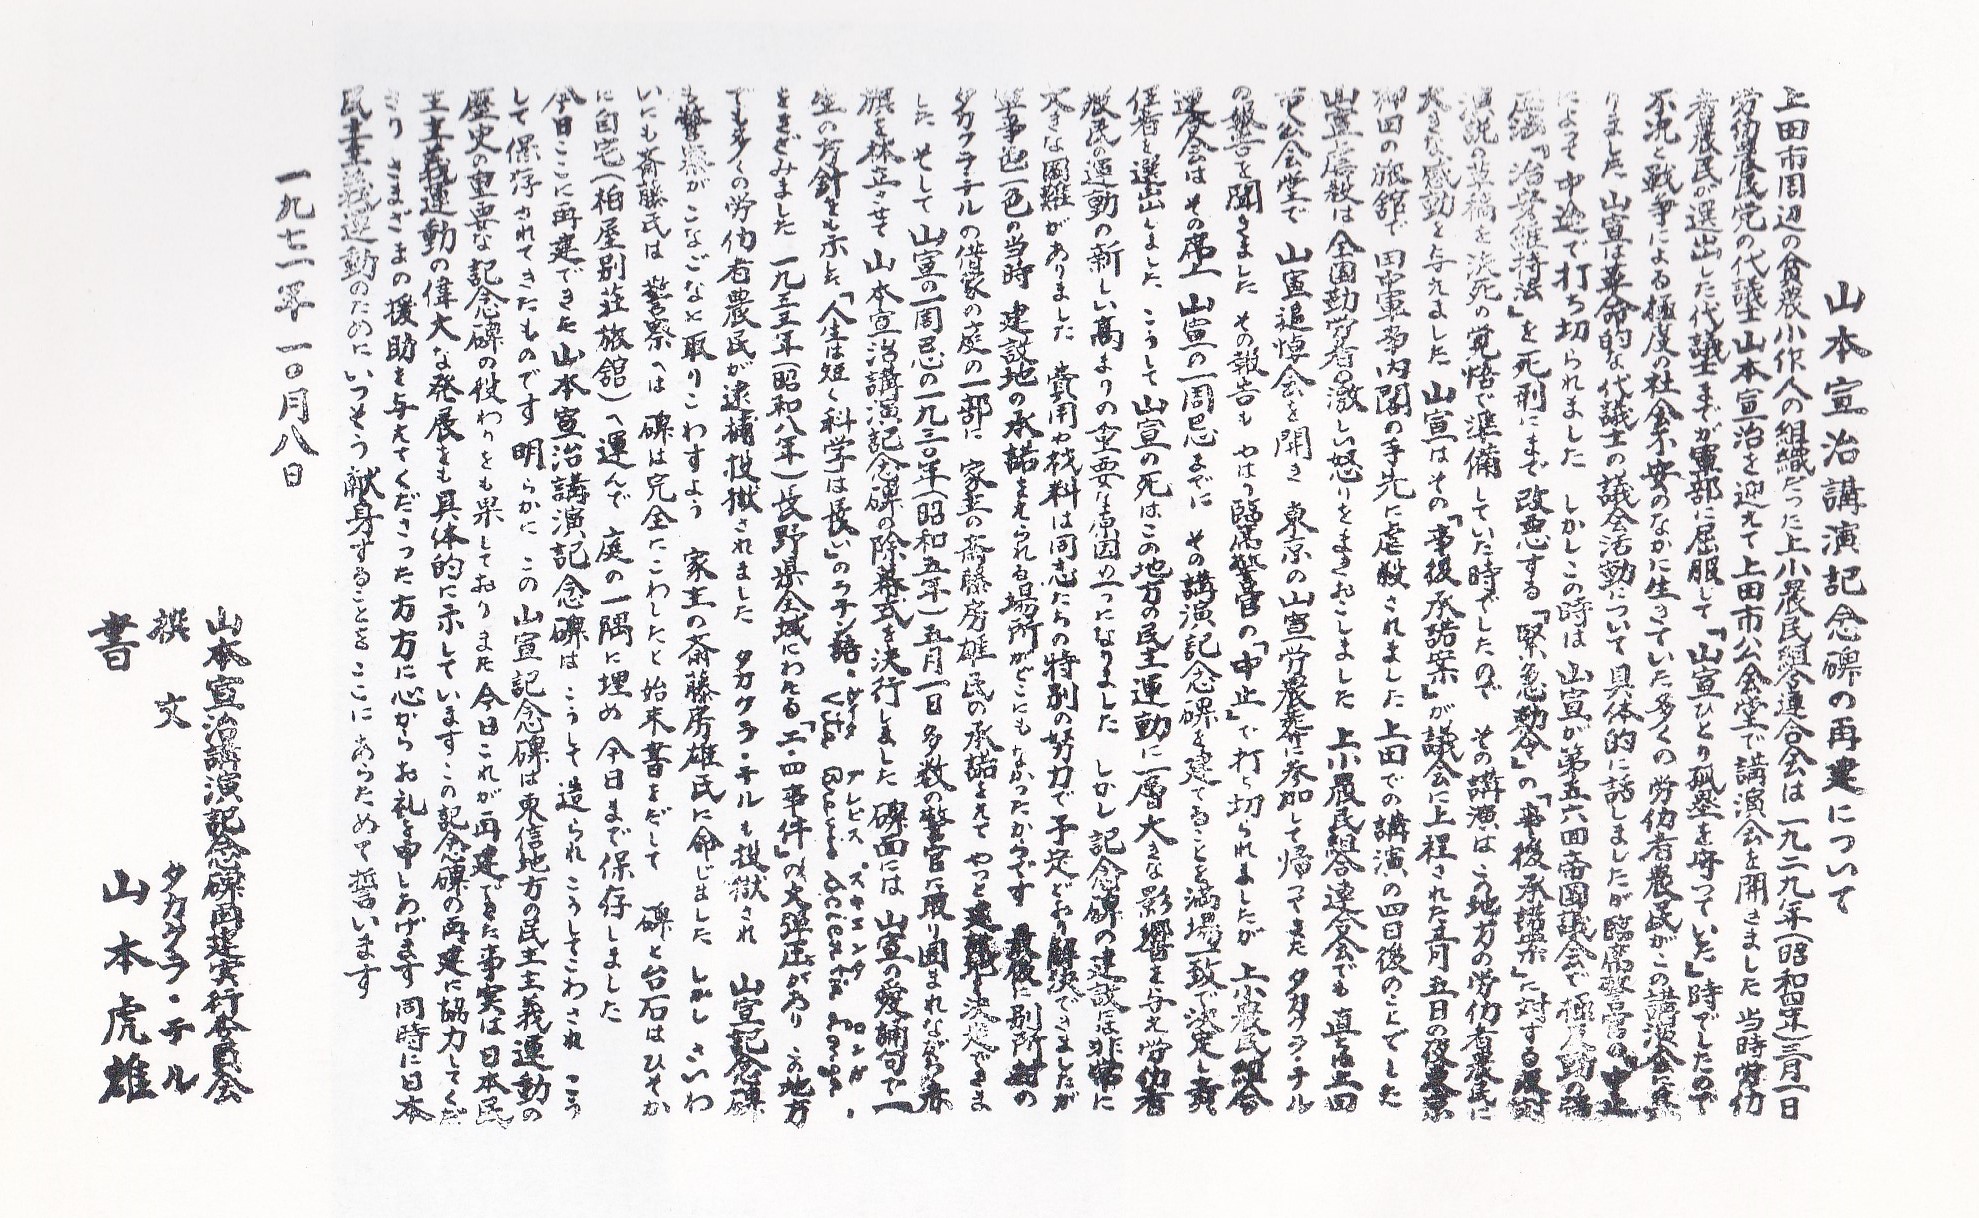 山本宣治講演記念碑の再建について
上田市周辺の貧農小作人の組織だった上小農民組合連合会は一九二九年(昭和四年)三月一日
労働農民党の代議士山本宣治を迎えて上田市公会堂で講演会を開きました 当時労仂
者農民の選出した代議士までが軍部に屈服して「山宣ひとり孤塁を守っていた」時でしたので
不況と戦争による極度の社会不安のなかに生きていた多くの労仂者農民がこの講演会に
りました 山宣は革命的な代議士の議会活動について具体的に話しましたが臨席警官の「中止」
によって中途で打ち切られました しかしこの時は 山宣が第五六回帝国議会で極
「治安維持法」を死刑にまで改悪する「緊急勅令」の「事後承諾案」に対する反対
演説の草稿を決死の覚悟で準備していた時でしたので その講演は この地方の労仂者農民に
大きな感動を与えました 山宣はその「事後承諾案」が議会に上程された三月五日の夜東京
神田の旅館で 田中軍事内閣の手先に虐殺されました 上田での講演の四日後のことでした
山宣虐殺は全国勤労者の激しい怒りをまきおこしました 上小農民組合連合会でも 直ちに上田
市公会堂で 山宣追悼会を開き 東京の山宣労農葬に参加して帰ってきた タカクラ・テル
の報告を聞きました その報告も やはり臨席警官の「中止」で打ち切られましたが 上小農民組合
連合会は その席上 山宣の一周忌までに その講演記念碑を建てることを満場一致で決定し 責
任者を選出しました こうして 山宣の死はこの地方の民主運動に一層大きな影響を与え労仂者
農民の運動の新しい高まりの重要な原因の一つになりました しかし 記念碑の建設には非常に
大きな困難がありました 費用や材料は同志たちの特別の努力で予定どおり解決できましたが
軍事色一色の当時 建設地の承諾をえられる場所がどこにもなかったからです 最後に別所村の
タカクラ・テルの借家の庭の一部に 家主の斎藤房雄氏の承諾をえて やっと建設地を決定できま
した そして 山宣の一周忌の一九三〇年(昭和五年)五月一日 多数の警官に取り囲まれながら赤
旗を林立させて 山本宣治講演記念碑の除幕式を決行しました 碑面には 山宣の愛誦句で一
生の方針をも示した「人生は短く科学は長い」のラテン語
をきざみました 一九三三年(昭和八年)長野県全域にわたる「二・四事件」の大弾圧があり この地方
でも多くの労仂者農民が逮捕投獄されました タカクラ・テルも投獄され 山宣記念碑
も警察がこなごなに取りこわすよう 家主の斎藤房雄氏に命じました しかし さいわ
いにも斎藤氏は 警察へは 碑は完全にこわしたと始末書をだして 碑と台石はひそか
に自宅(柏屋別荘旅館)へ運んで 庭の一隅に埋め 今日まで保存しました
今日ここに再建できた山本宣治講演記念碑は こうして造られ こうしてこわされ こう
して保存されてきたものです 明らかに この山宣記念碑は東信地方の民主主義運動の
歴史の重要な記念碑の役わりをも果しております 今日これが再建できた事実は日本民
主主義運動の偉大な発展をも具体的に示しています この記念碑の再建に協力してくだ
さり さまざまの援助を与えてくださった方方に心からお礼を申しあげます 同時に日本
民主主義運動のためにいっそう献身することを ここにあらためて誓います
一九七一年一〇月八日
山本宣治講演記念碑再建実行委員会
撰文 タカクラ・テル
書 山本虎雄